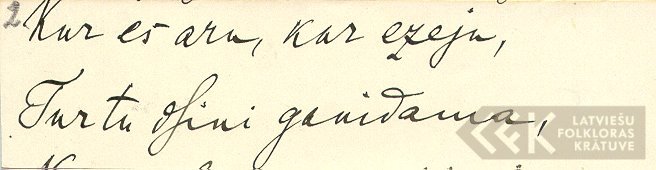 2 Kur es aru, kur ezeju,
Tur tu dſini ganidama,
LATVIEŠU
FOLKLORAS
KRĀTUVE
LFK